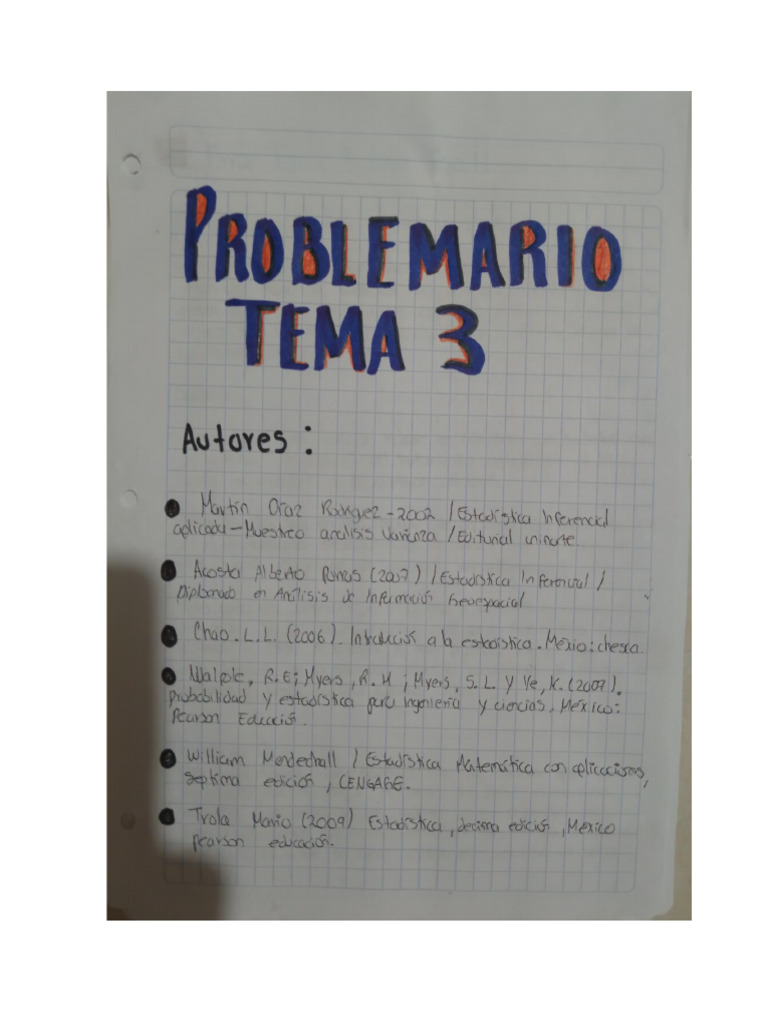 PROBLEMARIO
TEMA 3
Autores:
Martín Díaz -2002 / Estadística Inferencial
aplicada - Muestreo analisis varianza / Editorial uninorte.
Acosta Alberto (2007) / Estadística Inferencial /
Diplomado en Análisis de Información Geoespacial
Chao. L.L. (2006). Introducción a la estadística. México: checsa.
Walpole, R.E; Myers, R.H ; Myers, S.L. y Ye, K. (2007).
Probabilidad y estadística para ingeniería y ciencias, México:
Pearson Educación.
William Mendedhall / Estadística Matemática con aplicaciones,
septima edición, CENGAGE.
Trola Mario (2009) Estadística, decima edición, México
Pearson educación.